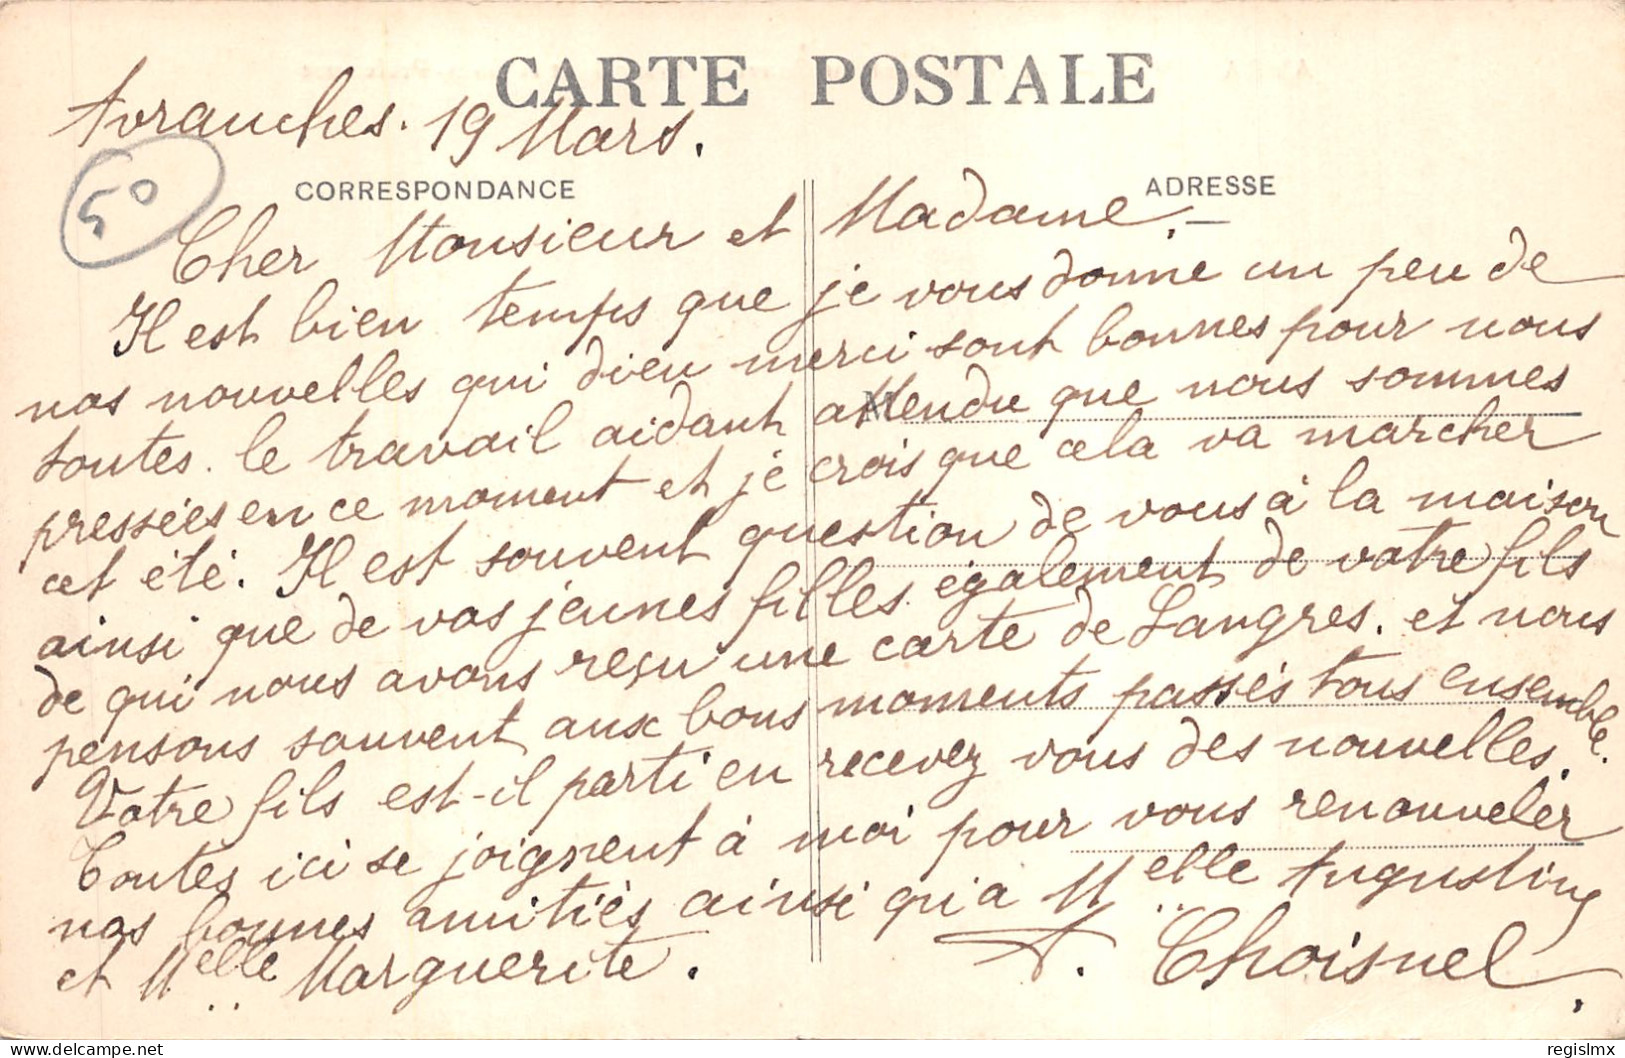 CARTE POSTALE
Avranches. 19 Mars.
CORRESPONDANCE
ADRESSE
50
Cher Monsieur et Madame.
Il est bien temps que je vous donne un peu de
nos nouvelles qui dieu merci sont bonnes pour nous
toutes. le travail aidant attendu que nous sommes
pressées en ce moment et je crois que cela va marcher
cet été. Il est souvent question de vous à la maison
ainsi que de vos jeunes filles également de votre fils
de qui nous avons reçu une carte de Langres. et nous
pensons souvent aux bons moments passés tous ensemble.
Votre fils est-il parti en recevez vous des nouvelles.
Toutes ici se joignent à moi pour vous renouveler
nos bonnes amitiés ainsi qu'a Melle Augustine
et Melle Marguerite.
A. Choisnel
regislmx